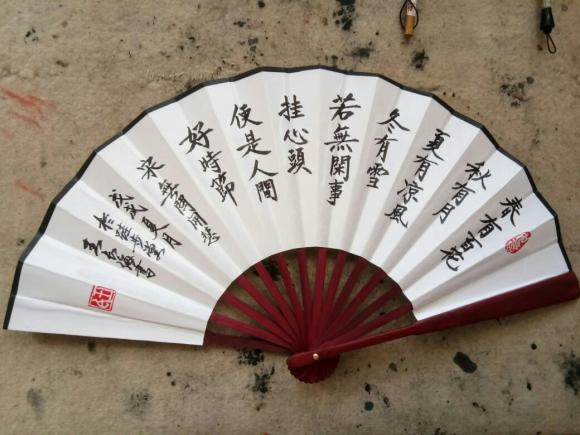 春有百花
秋有月
夏有涼風
冬有雪
若無閑事
挂心頭
便是人間
好時節
宋無門開
戊戌夏月